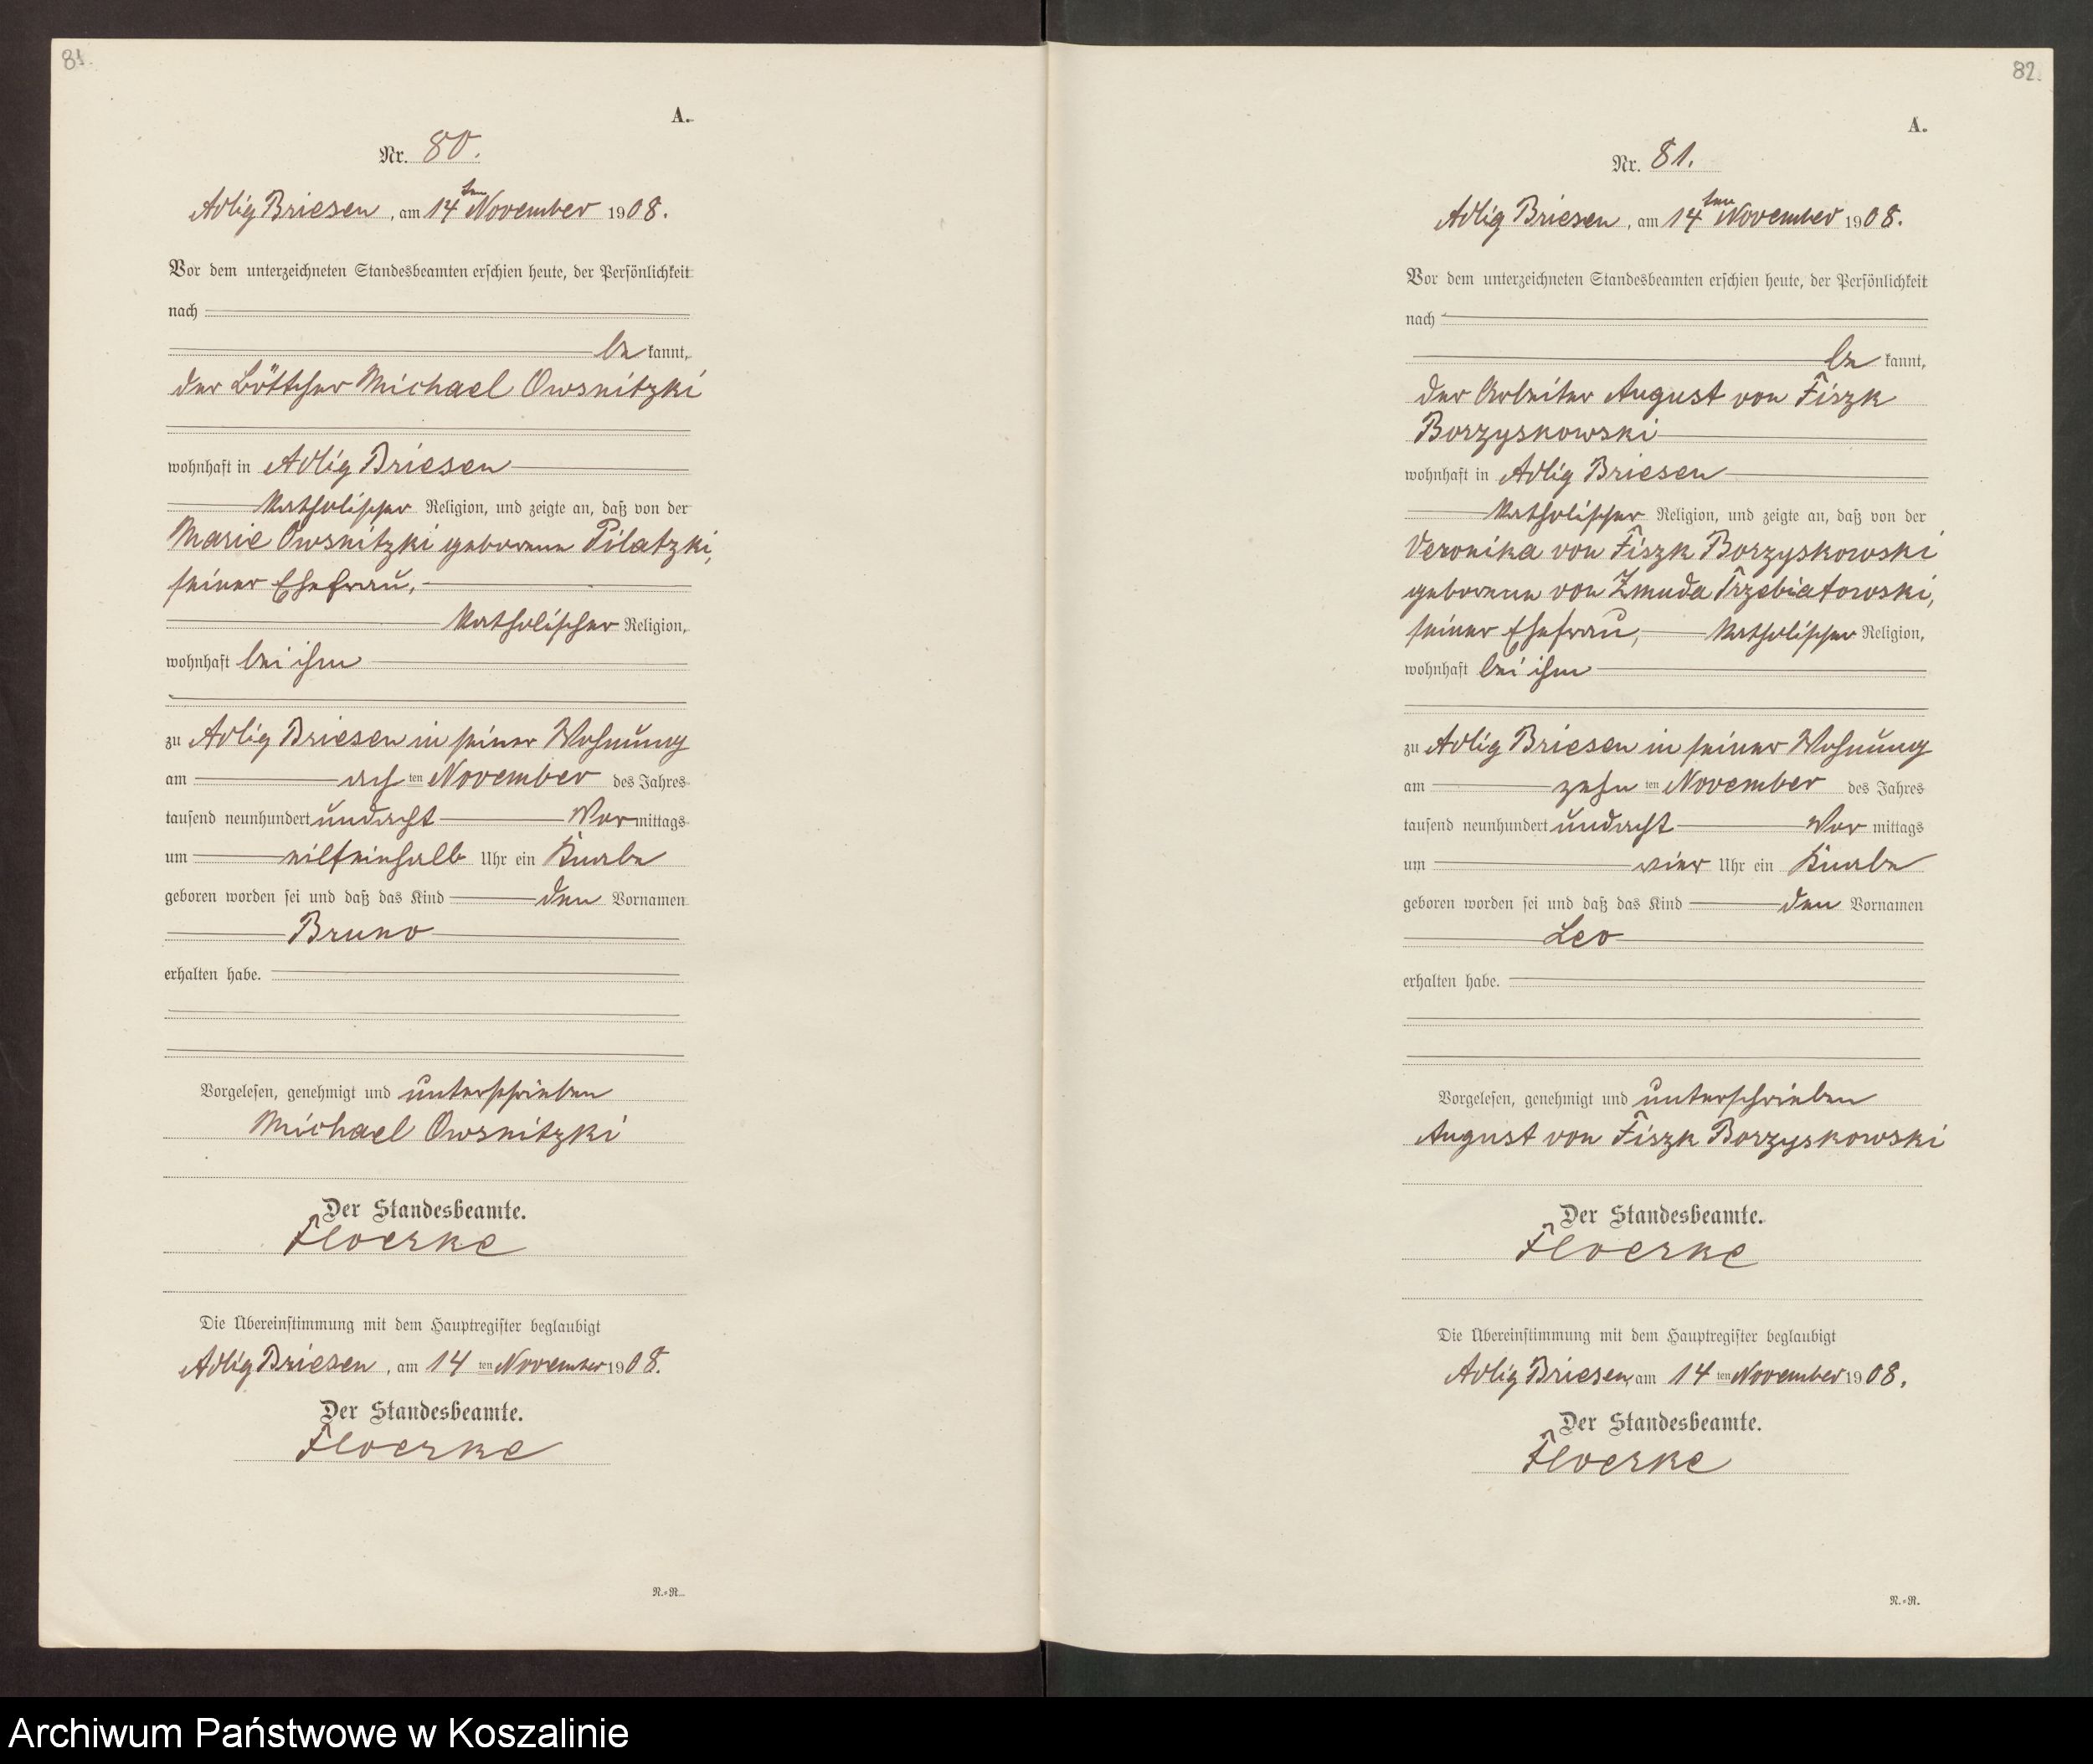 81.
A.
Nr. 80.
Adlig Briesen, am 14ten November 1908.
Vor dem unterzeichneten Standesbeamten erschien heute, der Persönlichkeit
nach
be kannt,
der Böttcher Michael Owsnitzki
wohnhaft in Adlig Briesen
katholischer Religion, und zeigte an, daß von der
Marie Owsnitzki geborene Pilatzki,
seiner Ehefrau,
katholischer Religion,
wohnhaft bei ihm
zu Adlig Briesen in seiner Wohnung
am acht ten November des Jahres
tausend neunhundert undacht Vormittags
um elfeinhalb Uhr ein Knabe
geboren worden sei und daß das Kind den Vornamen
Bruno
erhalten habe.
Vorgelesen, genehmigt und unterschrieben
Michael Owsnitzki
Der Standesbeamte.
Floerke
Die Übereinstimmung mit dem Hauptregister beglaubigt
Adlig Briesen, am 14 ten November 1908.
Der Standesbeamte.
Floerke
N.=R.
82.
A.
Nr. 81.
Adlig Briesen, am 14ten November 1908.
Vor dem unterzeichneten Standesbeamten erschien heute, der Persönlichkeit
nach
be kannt,
der Arbeiter August von Fiszk
Borzyskowski
wohnhaft in Adlig Briesen
katholischer Religion, und zeigte an, daß von der
Veronika von Fiszk Borzyskowski
geborene von Zmuda Trzebiatowski,
seiner Ehefrau, katholischer Religion,
wohnhaft bei ihm
zu Adlig Briesen in seiner Wohnung
am zehn ten November des Jahres
tausend neunhundert undacht Vor mittags
um vier Uhr ein Knabe
geboren worden sei und daß das Kind den Vornamen
Leo
erhalten habe.
Vorgelesen, genehmigt und unterschrieben
August von Fiszk Borzyskowski
Der Standesbeamte.
Floerke
Die Übereinstimmung mit dem Hauptregister beglaubigt
Adlig Briesen, am 14 ten November 1908.
Der Standesbeamte.
Floerke
N.=R.
Archiwum Państwowe w Koszalinie